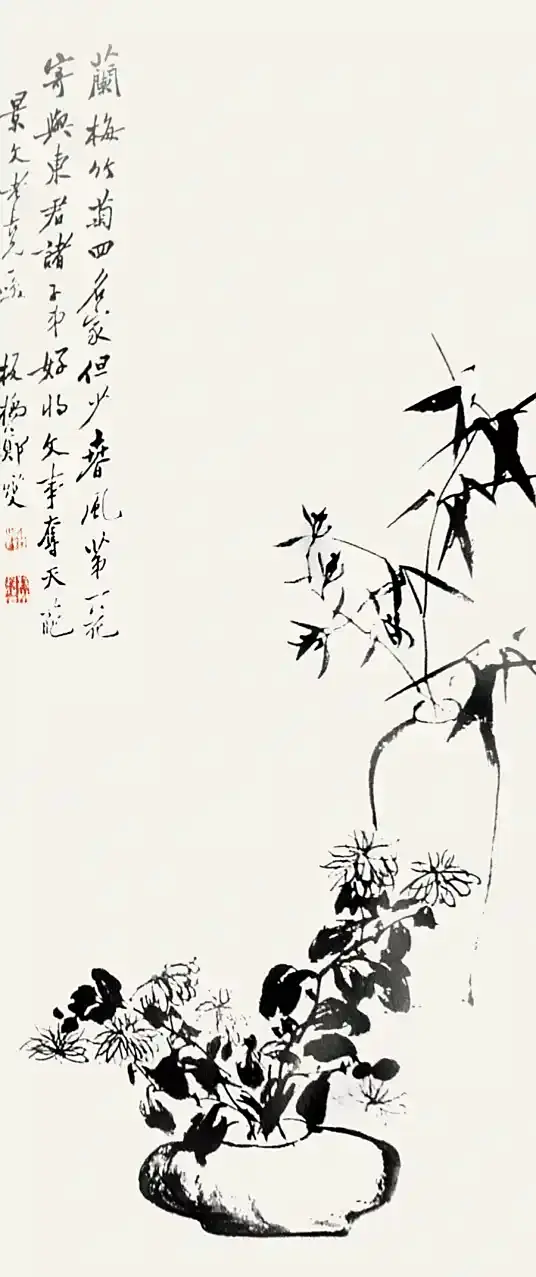 蘭梅竹菊四名家但少春風第一花
寄與東君諸子弟好將文事奪天葩
景文老兄 板橋鄭燮